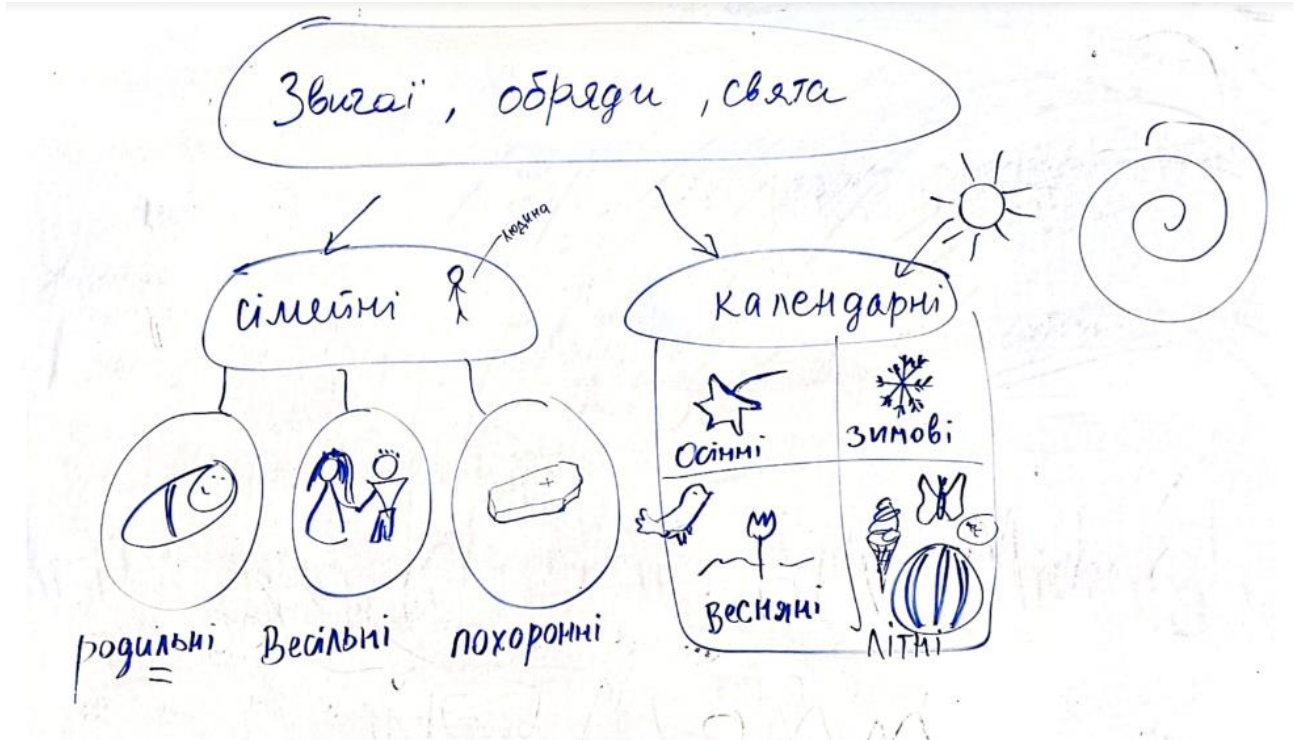 Звичаї, обряди, свята
людина
сімейні
календарні
осінні
зимові
весняні
літні
родильні
весільні
похоронні